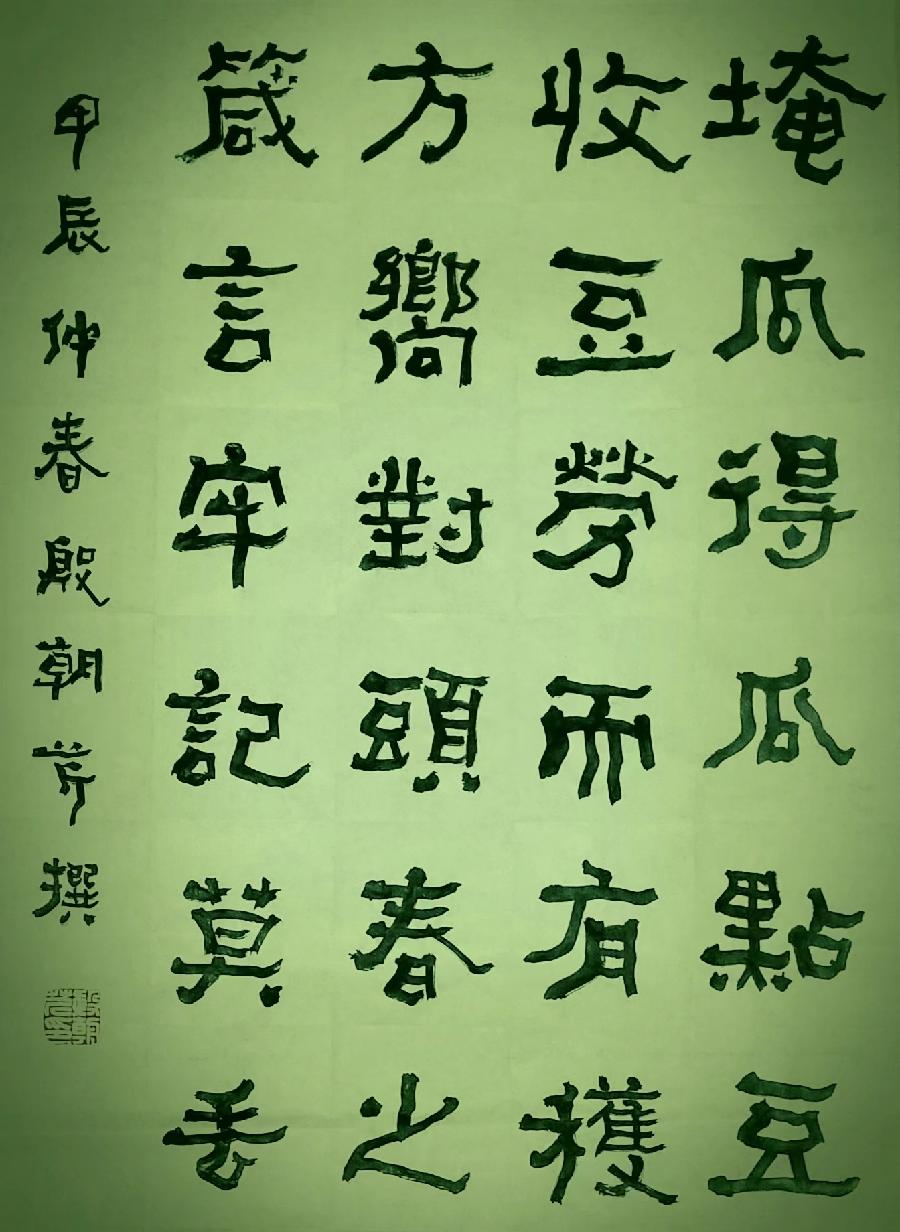 埯瓜得瓜點豆
收豆勞而有穫
方嚮對頭春之
箴言牢記莫丟
甲辰仲春殷朝芹撰